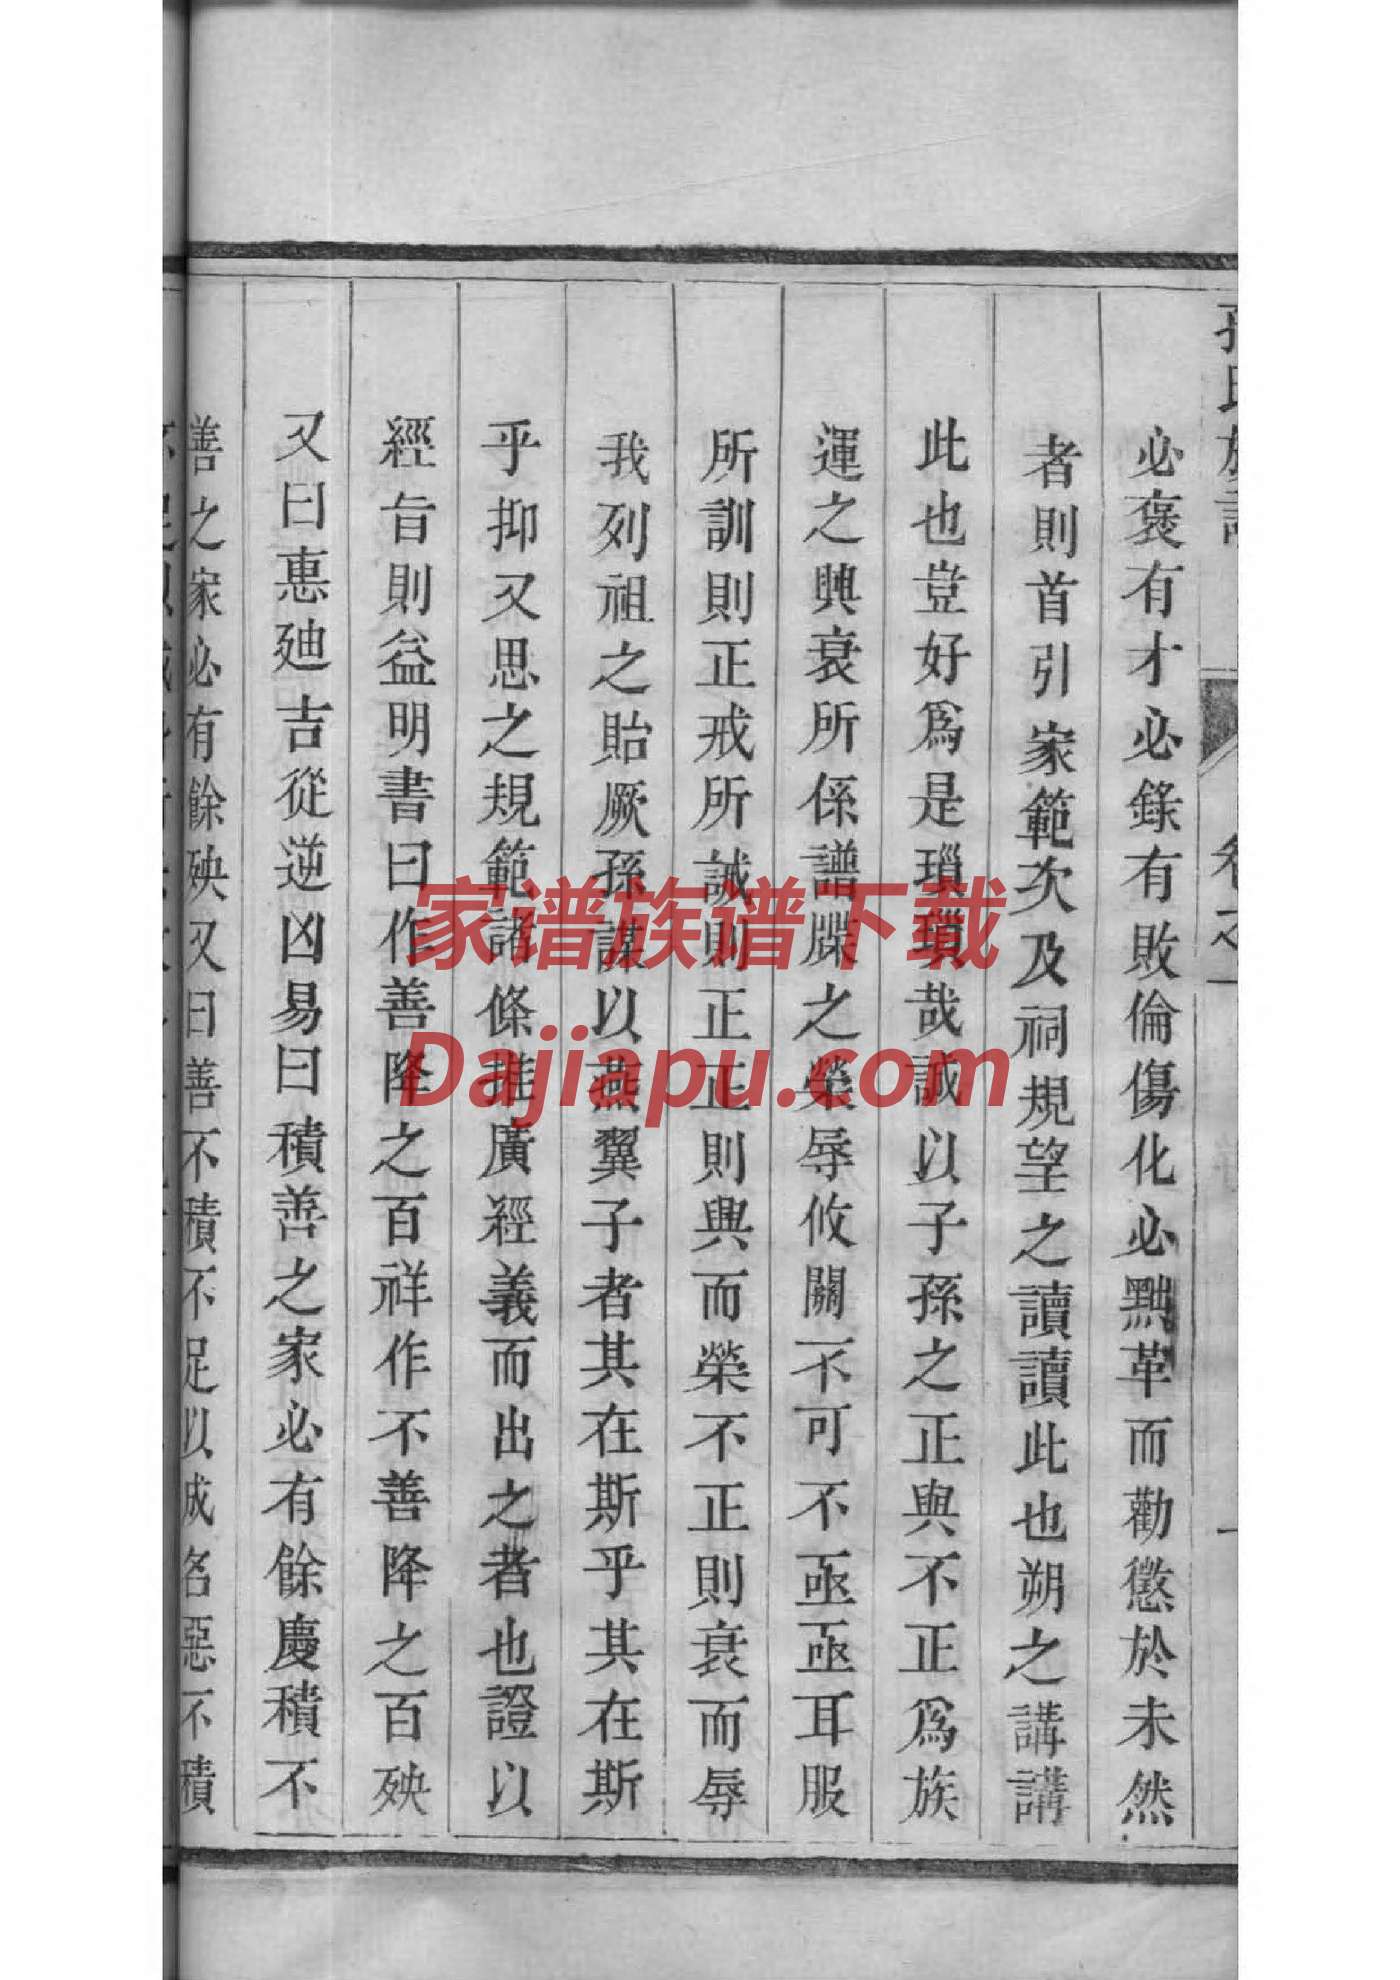 孫氏族譜 卷之一 一
必褒有才必錄有敗倫傷化必黜革而勸懲於未然
者則首引家範次及祠規望之讀讀此也朔之講講
此也豈好爲是瑣瑣哉誠以子孫之正與不正爲族
運之興衰所係譜牒之榮辱攸關不可不亟亟耳服
所訓則正戒所誡則正正則興而榮不正則衰而辱
我列祖之貽厥孫謀以燕翼子者其在斯乎其在斯
乎抑又思之規範諸條推廣經義而出之者也證以
經旨則益明書曰作善降之百祥作不善降之百殃
又曰惠廸吉從逆凶易曰積善之家必有餘慶積不
善之家必有餘殃又曰善不積不足以成名惡不積
家谱族谱下载
Dajiapu.com